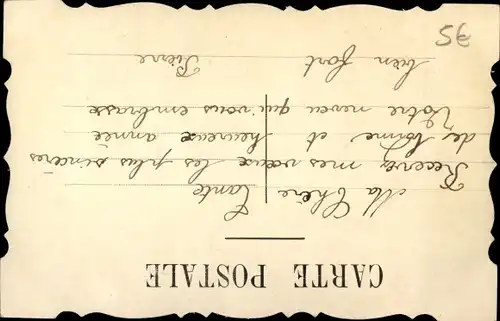 CARTE POSTALE
Ma Chère Tante
Recevez mes vœux les plus sincères
de bonne et heureuse année
Votre neveu qui vous embrasse
bien fort Pierre